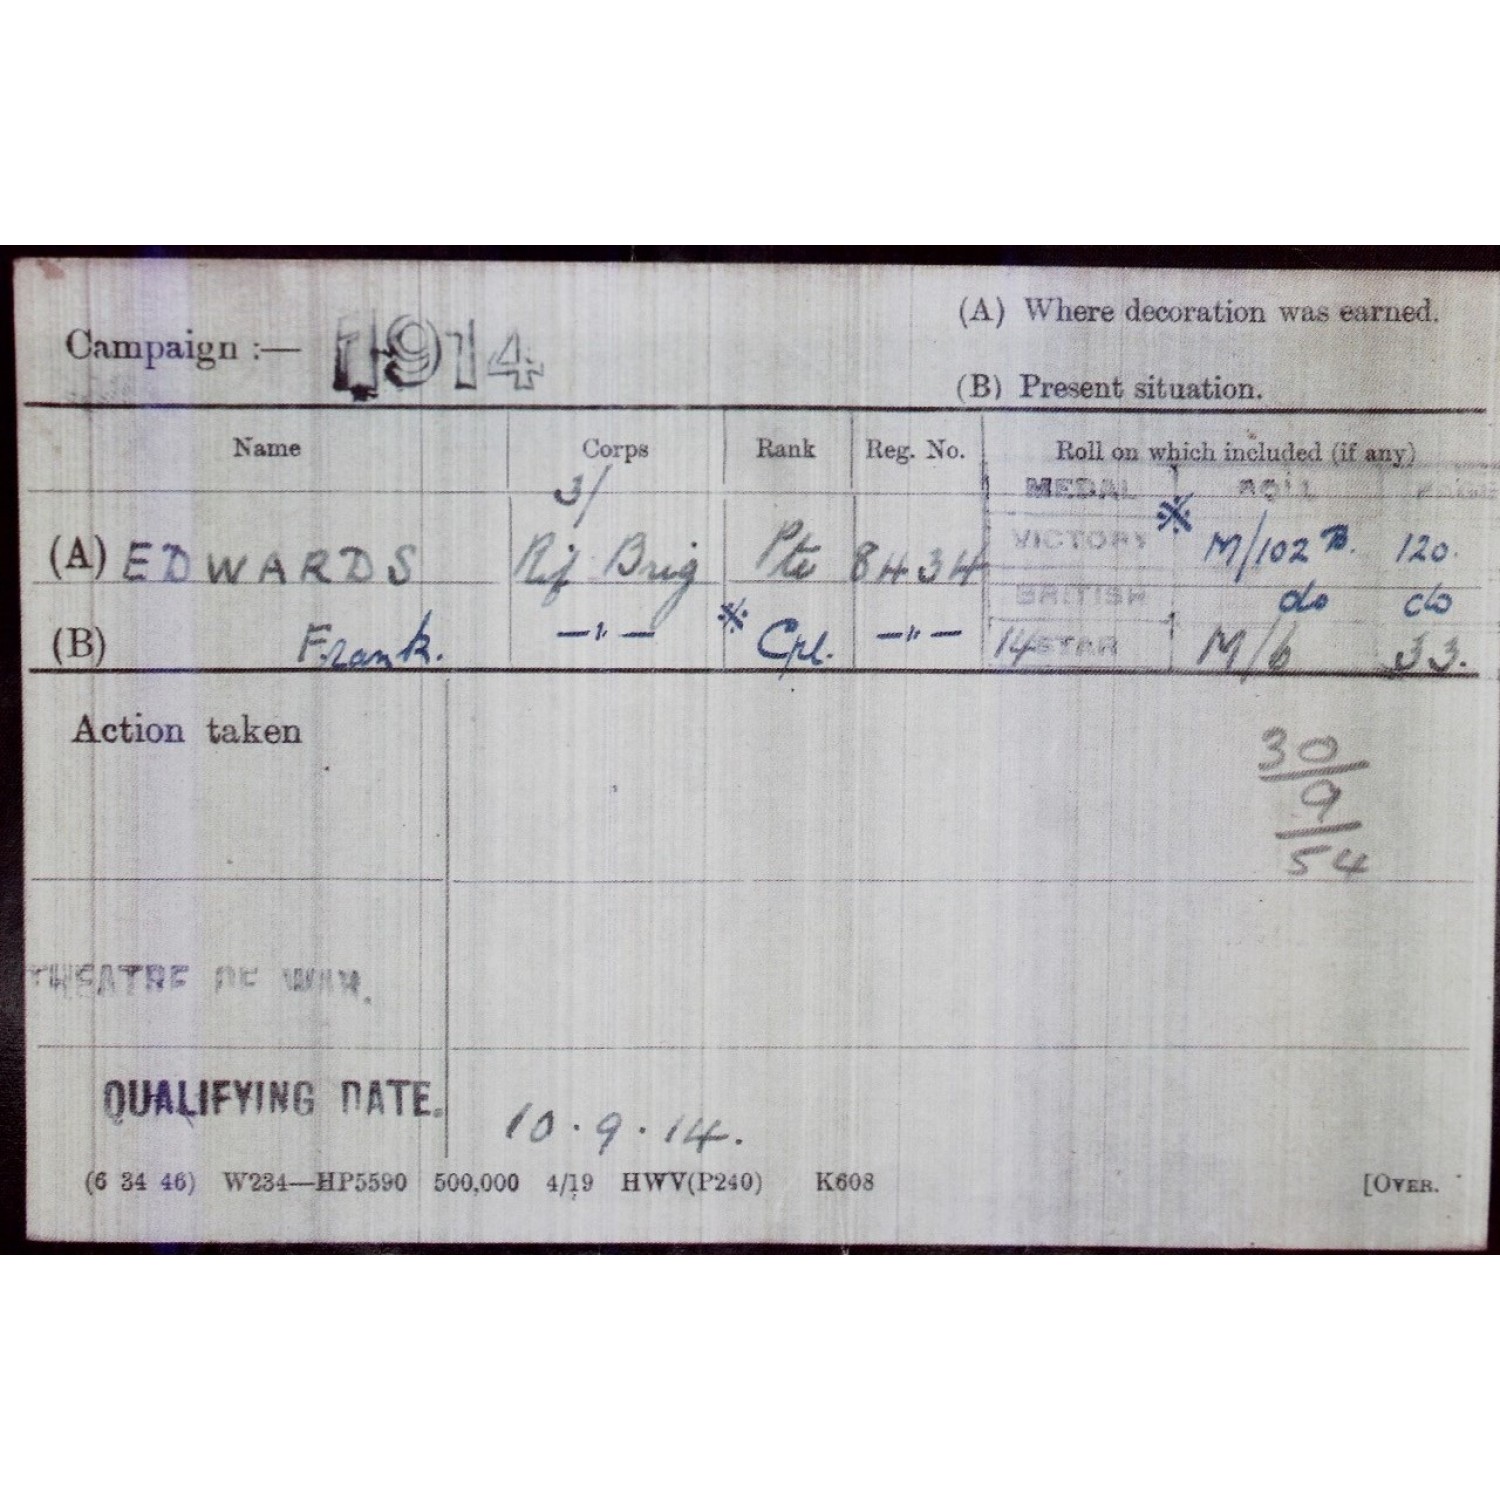 Campaign :— 1914
(A) Where decoration was earned.
(B) Present situation.
Name Corps Rank Reg. No. Roll on which included (if any)
3/ MEDAL ROLL PAGE
(A) EDWARDS Rif Brig Pte 8434 VICTORY ※ M/102 B. 120.
BRITISH do do
(B) Frank. —"— ※ Cpl. —"— 14 STAR M/6 33.
Action taken
30
9
54
THEATRE OF WAR.
QUALIFYING DATE. 10.9.14.
(6 34 46) W234—HP5590 500,000 4/19 HWV(P240) K608 [OVER.